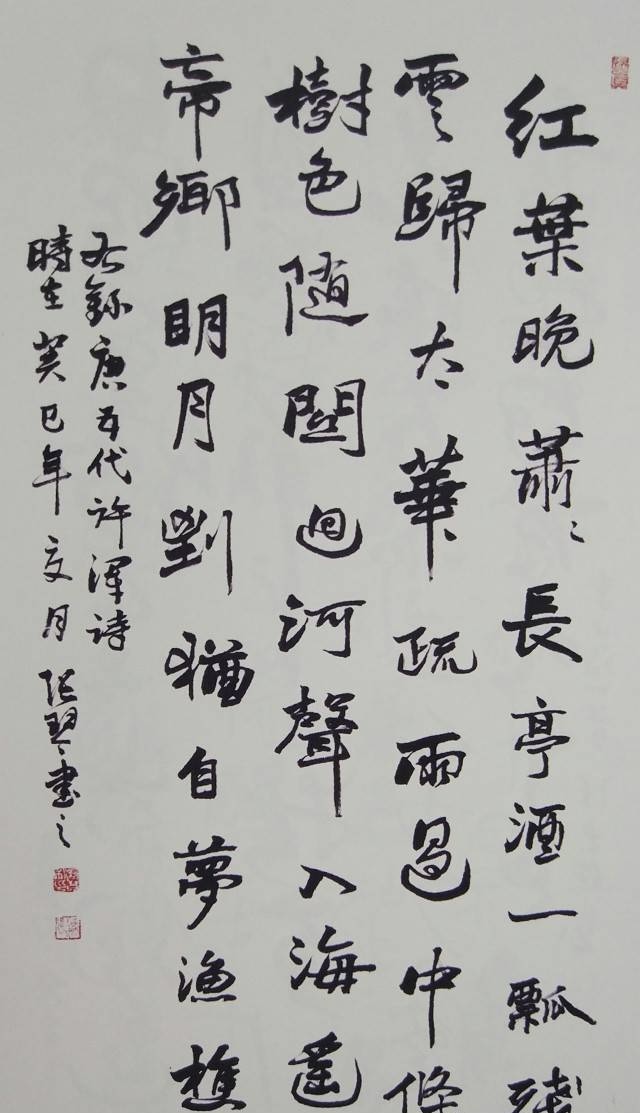 紅葉晚蕭〻長亭酒一瓢殘
雲歸太華疏雨過中條
樹色随關迥河聲入海遥
帝鄉明月劉猶自夢漁樵
右録唐五代许渾诗
時在癸巳年亥月張書之